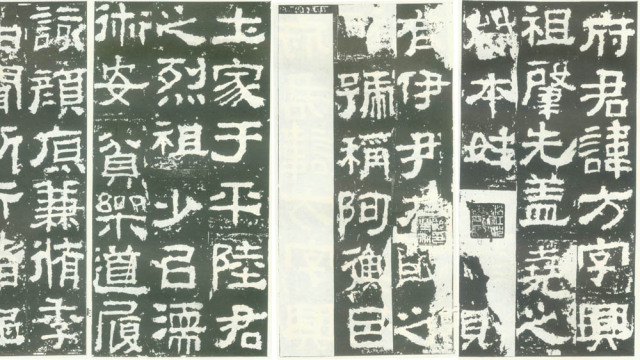 府君諱方字興
祖肇先蓋堯之
苗本姓
有伊尹在殷之
號稱阿衡因
土家于平陸君
之烈祖少以濡
術安貧樂道履
該顏原兼脩季
由聞斯行諸